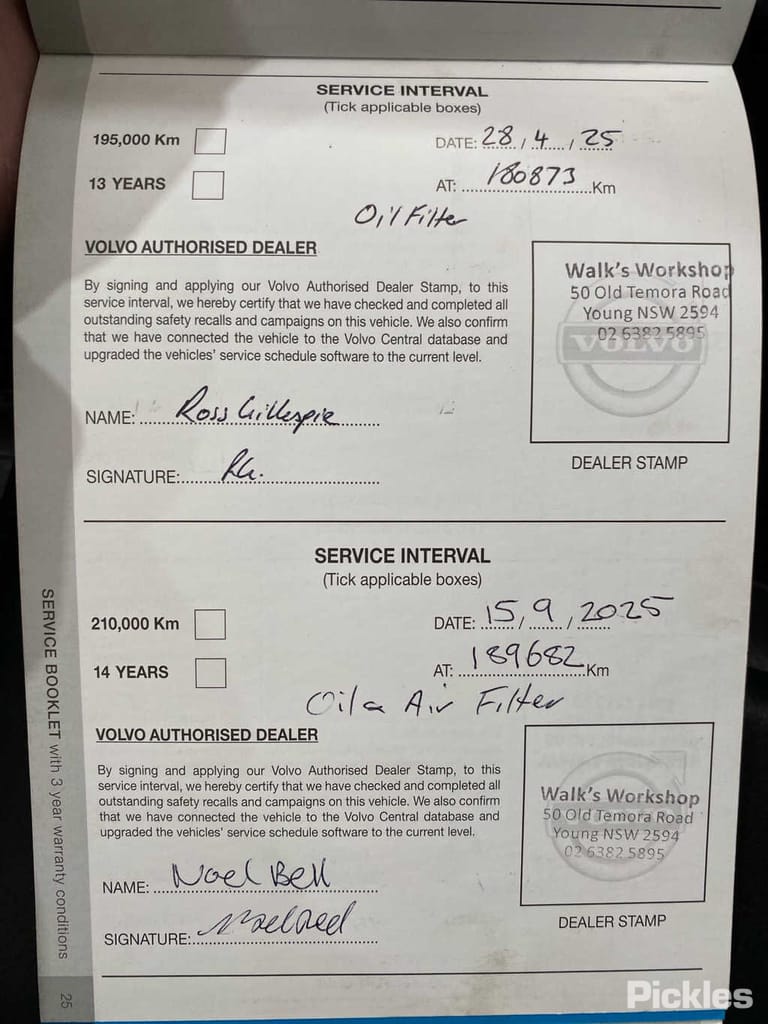 SERVICE INTERVAL
(Tick applicable boxes)
195,000 Km
DATE: 28 / 4 / 25
13 YEARS
AT: 180873 Km
Oil Filter
VOLVO AUTHORISED DEALER
By signing and applying our Volvo Authorised Dealer Stamp, to this
service interval, we hereby certify that we have checked and completed all
outstanding safety recalls and campaigns on this vehicle. We also confirm
that we have connected the vehicle to the Volvo Central database and
upgraded the vehicles' service schedule software to the current level.
Walk's Workshop
50 Old Temora Road
Young NSW 2594
02 6382 5895
VOLVO
NAME: Ross Gillespie
SIGNATURE: RG.
DEALER STAMP
SERVICE INTERVAL
(Tick applicable boxes)
210,000 Km
DATE: 15 / 9 / 2025
14 YEARS
AT: 189682 Km
Oil & Air Filter
VOLVO AUTHORISED DEALER
By signing and applying our Volvo Authorised Dealer Stamp, to this
service interval, we hereby certify that we have checked and completed all
outstanding safety recalls and campaigns on this vehicle. We also confirm
that we have connected the vehicle to the Volvo Central database and
upgraded the vehicles' service schedule software to the current level.
Walk's Workshop
50 Old Temora Road
Young NSW 2594
02 6382 5895
VOLVO
NAME: Noel Bell
SIGNATURE:
DEALER STAMP
SERVICE BOOKLET with 3 year warranty conditions
25
Pickles